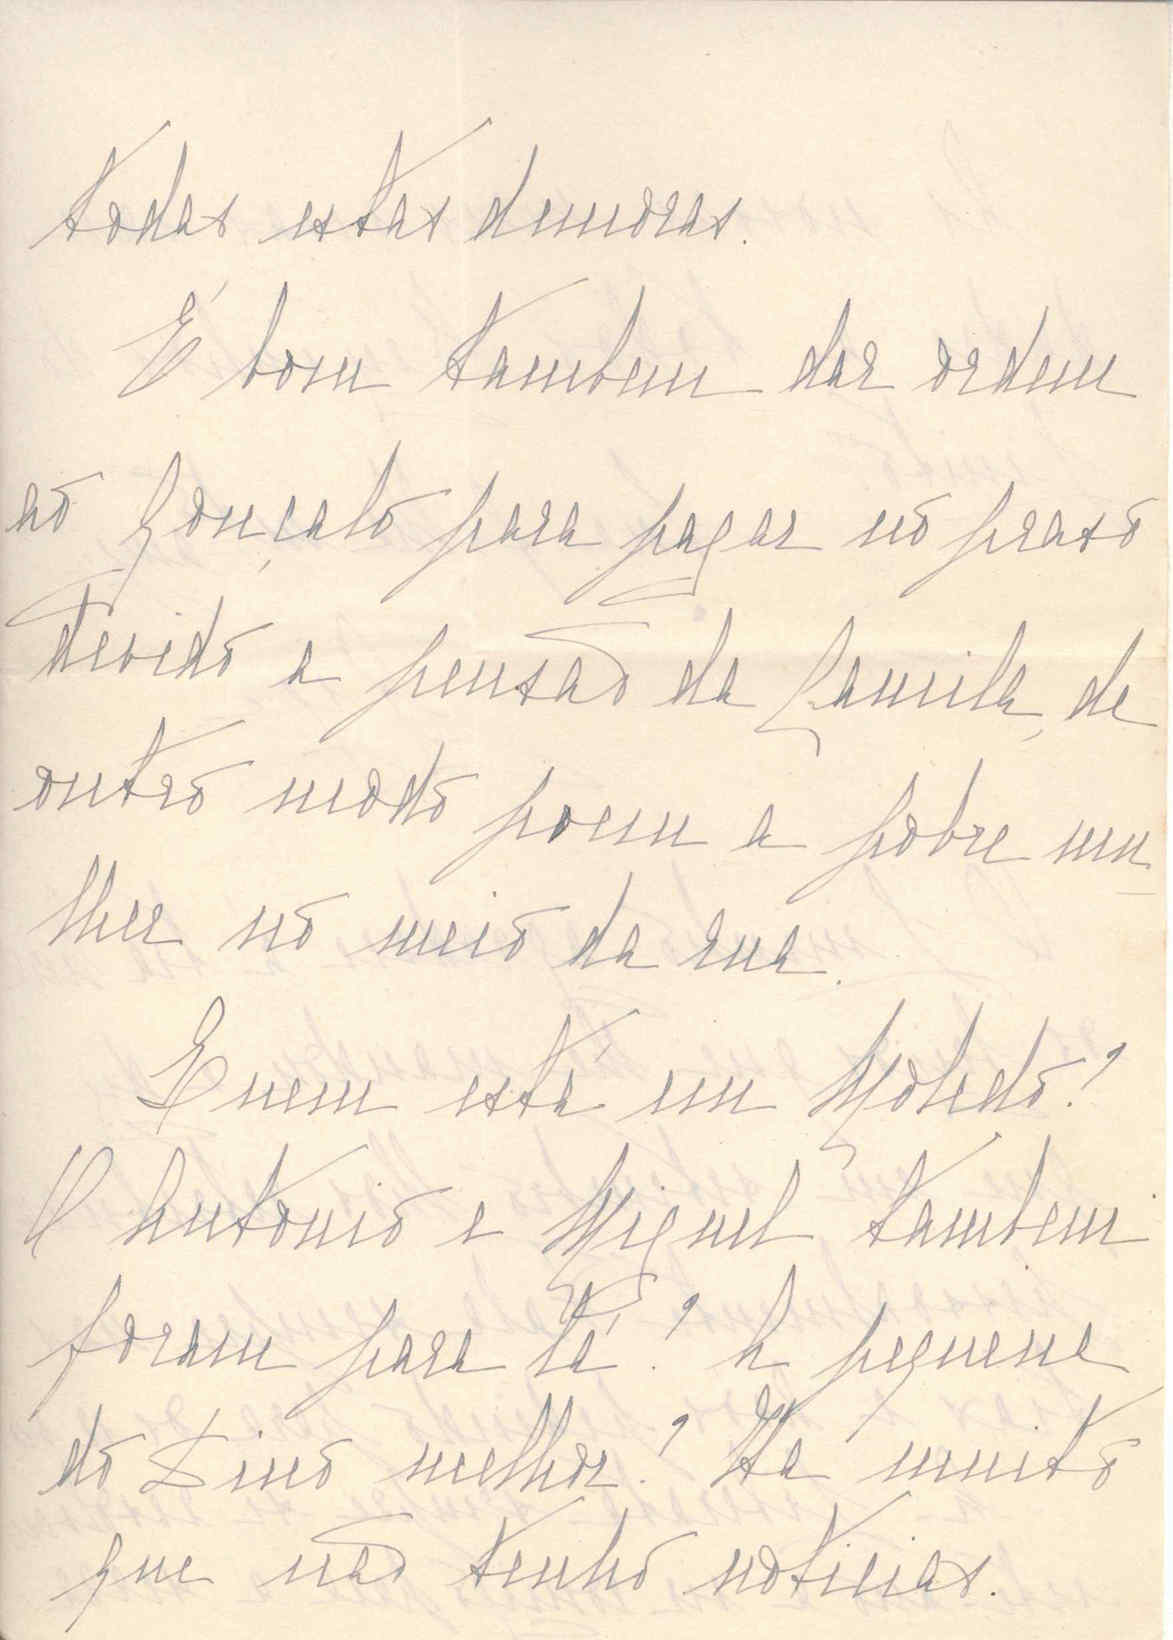 todas estas demoras.
É bom tambem dar ordem
ao Gonçalo para pagar no praso
devido a pensão da Camila, de
outro modo poem a pobre mu
lher no meio da rua.
Quem está em Moledo?
O Antonio e Miguel tambem
foram para lá? A pequena
do Dino melhor? Ha muito
que não tenho noticias.